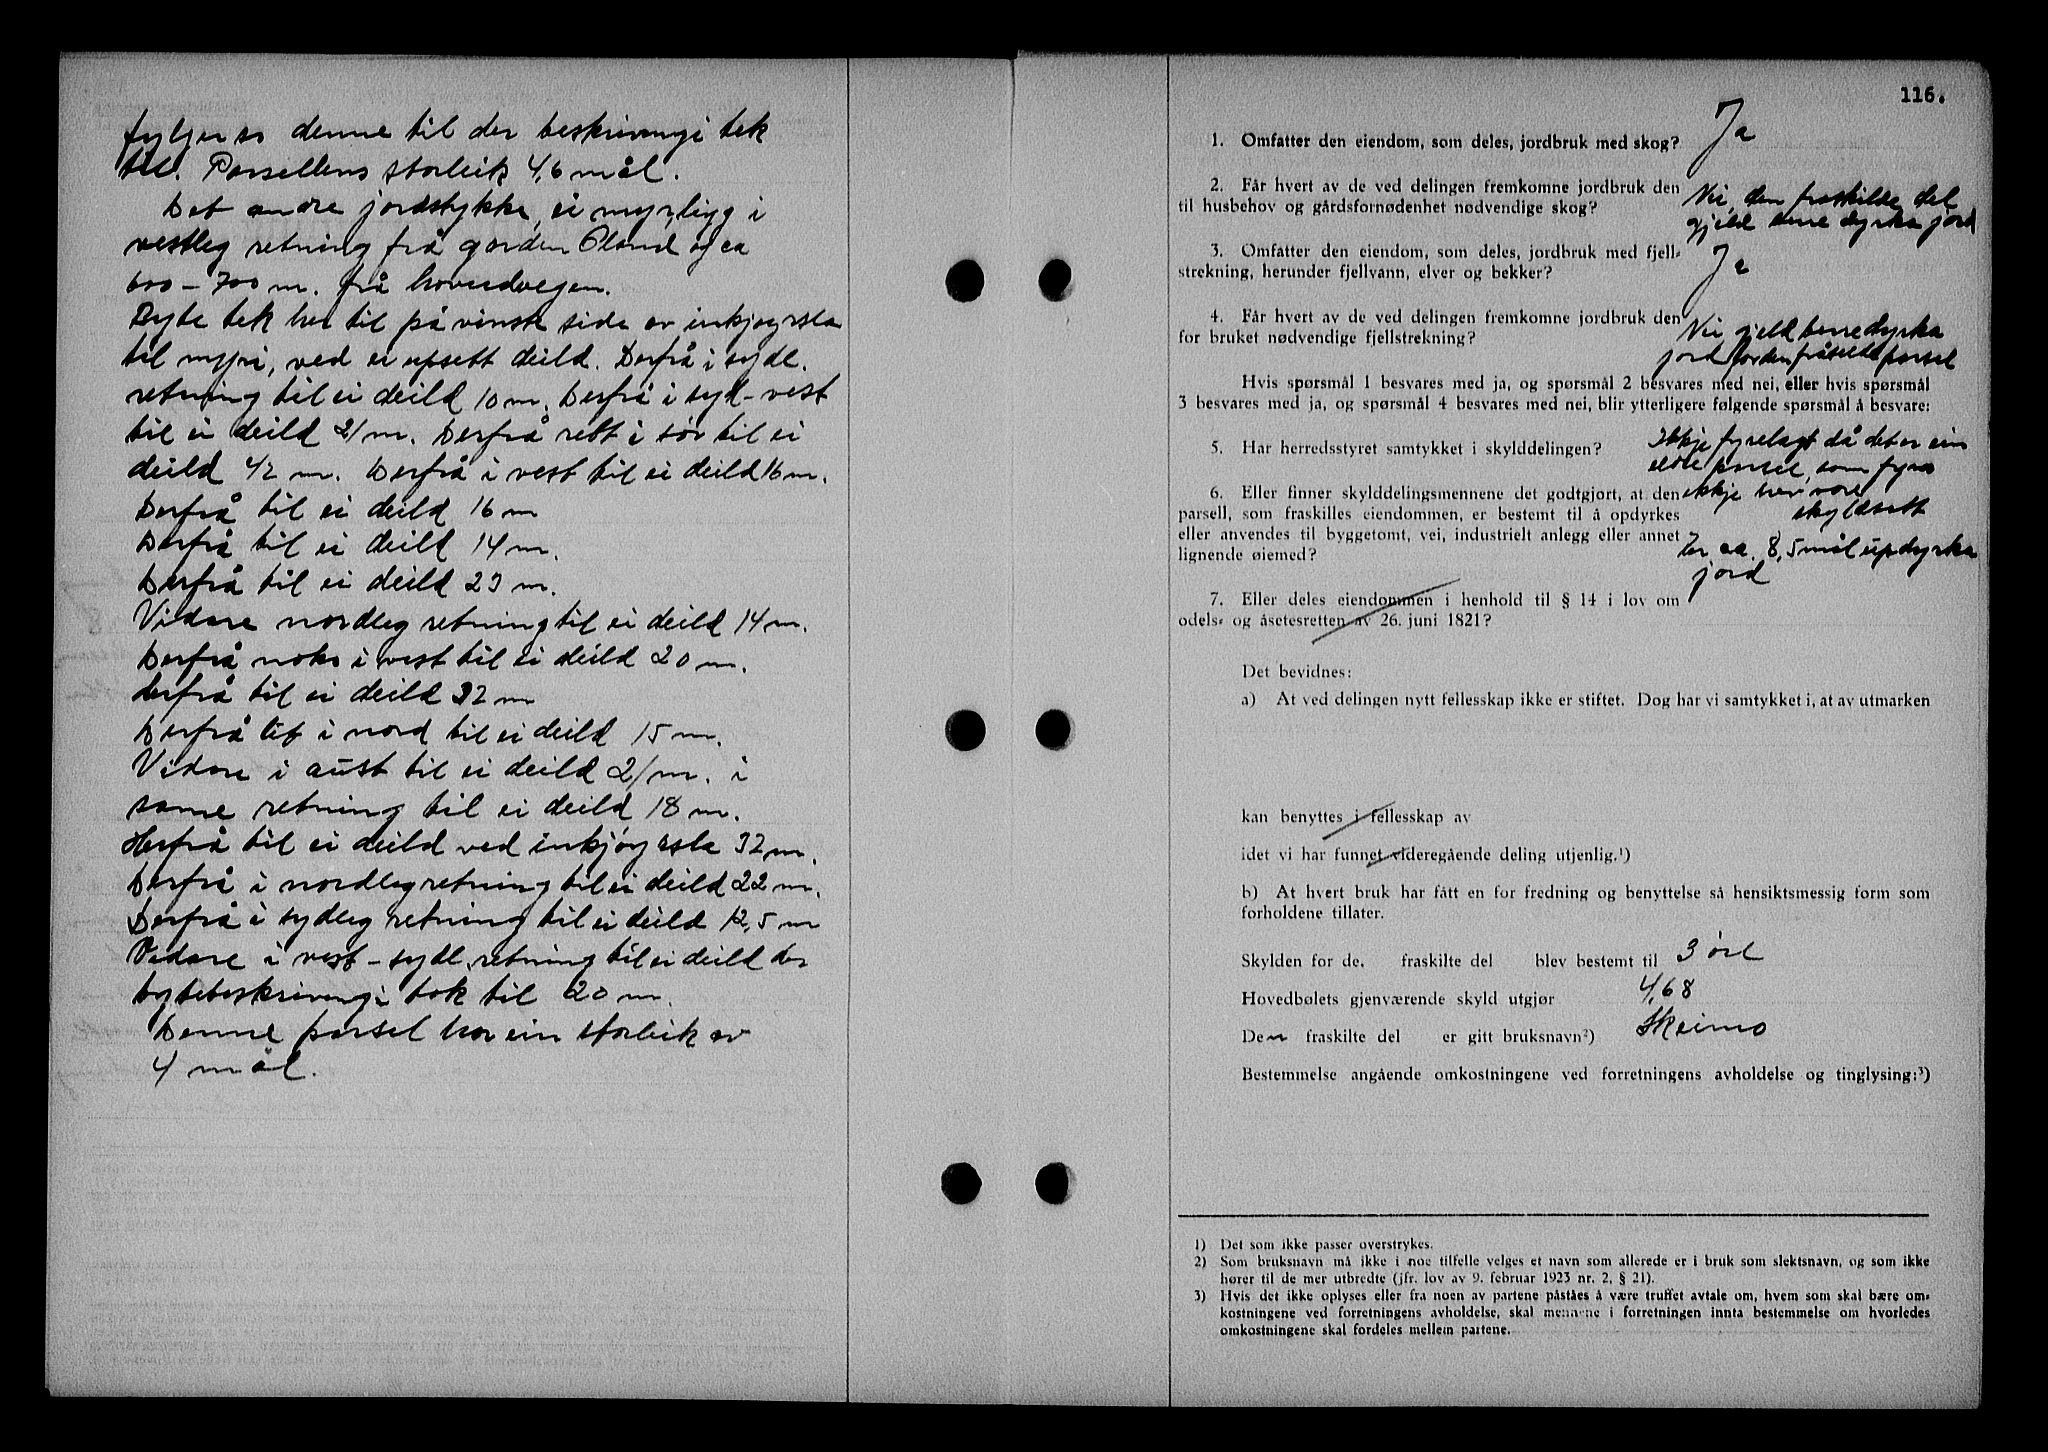 fylgjer so denne til der beskrivingi tek
til. Parsellens storleik 4,6 mål.
Det andre jordstykke, ei myr, ligg i
vestleg retning frå garden Oland og ca
600 – 700 m. frå hovudvegen.
Byte tek her til på vinstr side av innkjøyrsla
til myri, ved ei upsett deild. Derfrå i sydl.
retning til ei deild 10 m. Derfrå i syd-vest
til ei deild 21 m. Derfrå rett i sør til ei
deild 42 m. Derfrå i vest til ei deild 16 m.
Derfrå til ei deild 16 m
Derfrå til ei deild 14 m.
Derfrå til ei deild 23 m.
Vidare nordleg retning til ei deild 14 m.
Derfrå noko i vest til ei deild 20 m.
derfrå til ei deild 32 m
Derfrå litt i nord til ei deild 15 m.
Vidare i aust til ei deild 21 m. i
same retning til ei deild 18 m.
Herfrå til ei deild ved innkjøyrsla 32 m.
Derfrå i nordleg retning til ei deild 22 m.
Derfrå i sydleg retning til ei deild 12,5 m
Vidare i vest – sydl. retning til ei deild der
bytebeskrivingi tok til 20 m.
Denne parsel har ein storleik av
4 mål.
116.
1. Omfatter den eiendom, som deles, jordbruk med skog? Ja
2. Får hvert av de ved delingen fremkomne jordbruk den
til husbehov og gårdsfornødenhet nødvendige skog?
Nei, den fraskilde del
gjeld berre dyrka jord
3. Omfatter den eiendom, som deles, jordbruk med fjell-
strekning, herunder fjellvann, elver og bekker? Ja
4. Får hvert av de ved delingen fremkomne jordbruk den
for bruket nødvendige fjellstrekning?
Nei gjeld berre dyrka
jord for den fråseldte parsel
Hvis spørsmål 1 besvares med ja, og spørsmål 2 besvares med nei, eller hvis spørsmål
3 besvares med ja, og spørsmål 4 besvares med nei, blir ytterligere følgende spørsmål å besvare:
5. Har herredsstyret samtykket i skylddelingen?
Ikkje fyrelagt då det er ein
eldre parsel, som fyrr
ikkje har vore
skyldsett
6. Eller finner skylddelingsmennene det godtgjort, at den
parsell, som fraskilles eiendommen, er bestemt til å opdyrkes
eller anvendes til byggetomt, vei, industrielt anlegg eller annet
lignende øiemed?
Er ca. 8,5 mål updyrka
jord
7. Eller deles eiendommen i henhold til § 14 i lov om
odels- og åsetesretten av 26. juni 1821?
Det bevidnes:
a) At ved delingen nytt fellesskap ikke er stiftet. Dog har vi samtykket i, at av utmarken
kan benyttes i fellesskap av
idet vi har funnet videregående deling utjenlig.¹)
b) At hvert bruk har fått en for fredning og benyttelse så hensiktsmessig form som
forholdene tillater.
Skylden for de. fraskilte del blev bestemt til 3 öre
Hovedbølets gjenværende skyld utgjør 4,68
Den fraskilte del er gitt bruksnavn²) Skeimo
Bestemmelse angående omkostningene ved forretningens avholdelse og tinglysing:³)
1) Det som ikke passer overstrykes.
2) Som bruksnavn må ikke i noe tilfelle velges et navn som allerede er i bruk som slektsnavn, og som ikke
hører til de mer utbredte (jfr. lov av 9. februar 1923 nr. 2, § 21).
3) Hvis det ikke oplyses eller fra noen av partene påståes å være truffet avtale om, hvem som skal bære om-
kostningene ved forretningens avholdelse, skal mennene i forretningen innta bestemmelse om hvorledes
omkostningene skal fordeles mellem partene.